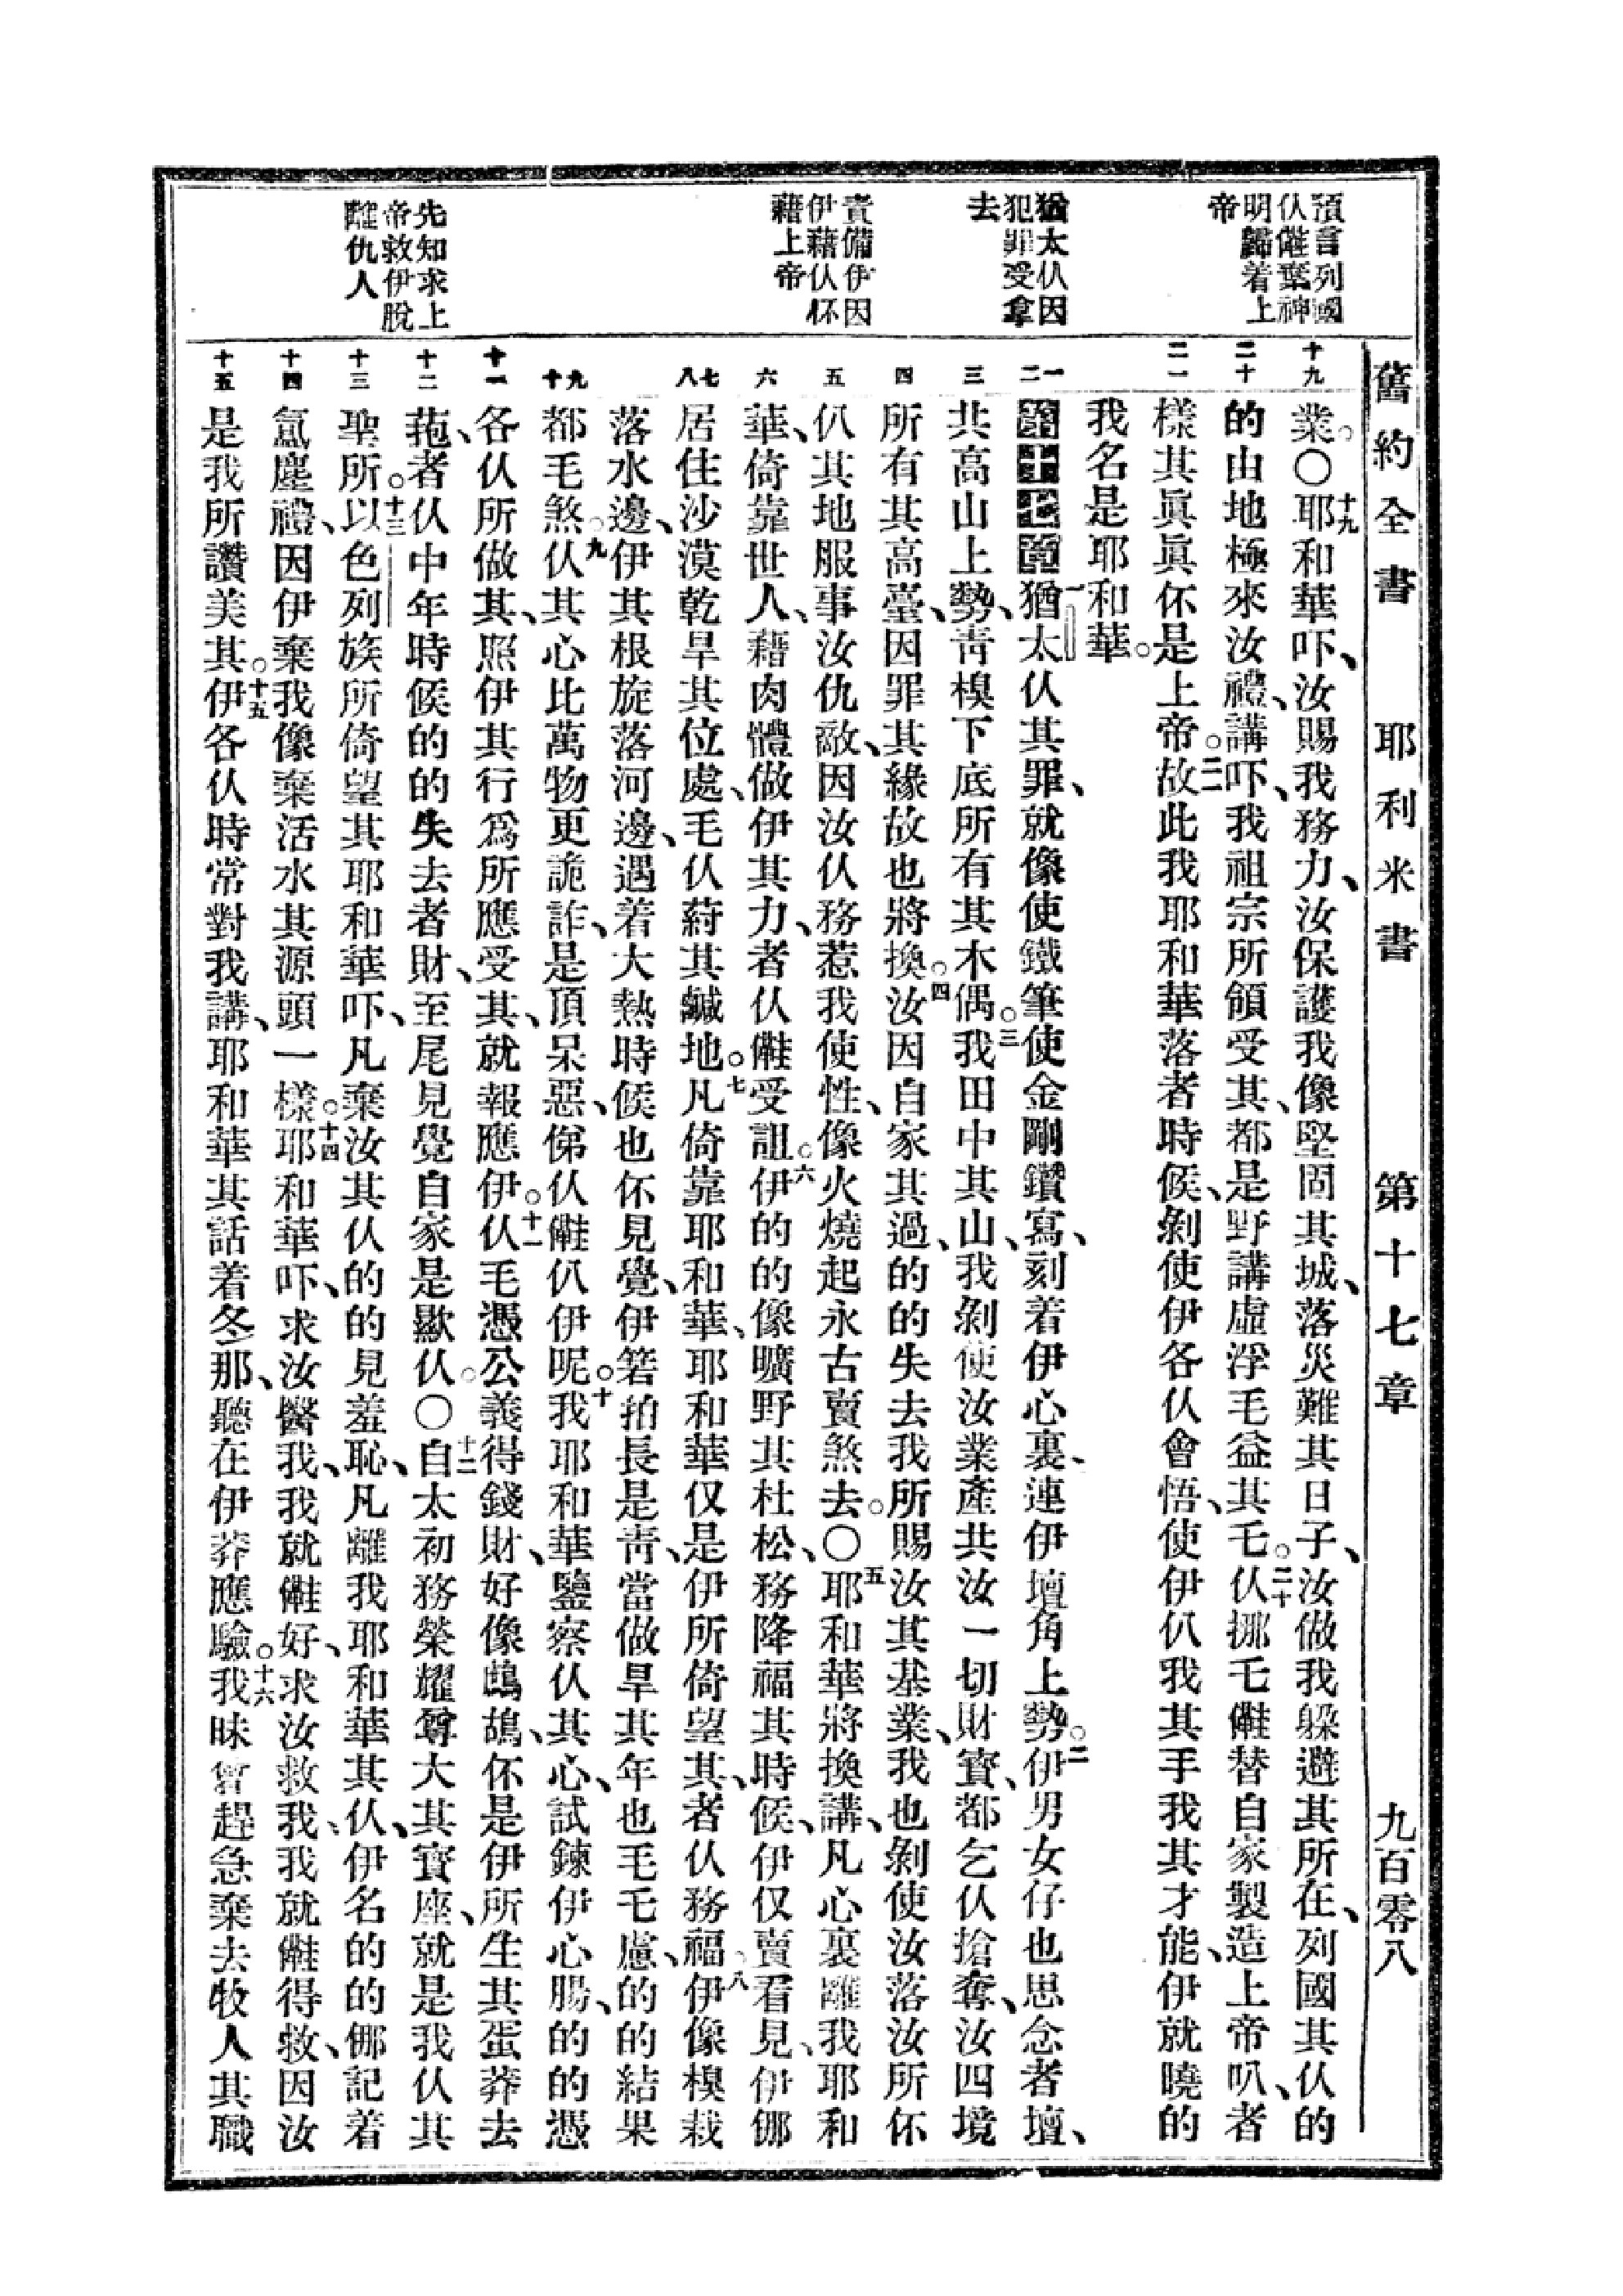 舊約全書　耶利米書　第十七章　九百零八
預言列國
仈儺棄神
明歸着上
帝
猶太仈因
犯罪受拿
去
責備伊因
伊藉仈伓
藉上帝
先知求上
帝救伊脫
離仇人
十九
二十
二一
一
二
三
四
五
六
七
八
九
十
十一
十二
十三
十四
十五
業。〇十九耶和華吓、汝賜我務力、汝保護我像堅固其城、落災難其日子、汝做我躱避其所在、列國其仈的
的由地極來汝禮、講吓、我祖宗所領受其、都是野講虛浮毛益其乇。二十仈挪乇儺替自家製造上帝叭、者
樣其眞眞伓是上帝。二一故此我耶和華落者時候、剝使伊各仈會悟、使伊仈我其手我其才能、伊就曉的
我名是耶和華。
第十七章一猶太仈其罪、就像使鐵筆使金剛鑽寫、刻着伊心裏、連伊壇角上勢。二伊男女仔也思念者壇、
共高山上勢、靑樻下底所有其木偶。三我田中其山、我剝使汝業產共汝一切財寶、都乞仈搶奪、汝四境
所有其高臺、因罪其緣故也將換。四汝因自家其過、的的失去我所賜汝其基業、我也剝使汝落汝所伓
仈其地服事汝仇敵、因汝仈務惹我使性、像火燒起永古賣煞去。〇五耶和華將換講、凡心裏離我耶和
華、倚靠世人、藉肉體做伊其力、者仈儺受詛。六伊的的像曠野其杜松、務降福其時候、伊仅賣看見、伊𠆧
居住沙漠乾旱其位處、毛仈葤其鹹地。七凡倚靠耶和華、耶和華仅是伊所倚望其、者仈務福。八伊像樻栽
落水邊、伊其根旋落河邊、遇着大熱時候也伓見覺、伊箬拍長是靑、當做旱其年也毛毛慮、的的結果
都毛煞。九仈其心比萬物更詭詐、是頂呆惡、俤仈儺仈伊呢。十我耶和華、鑒察仈其心、試鍊伊心腸、的的憑
各仈所做其、照伊其行爲所應受其、就報應伊。十一仈毛憑公義得錢財、好像鷓鴣、伓是伊所生其蛋莽去
菢、者仈中年時候的的失去者財、至尾見覺自家是㱮仈。〇十二自太初務榮耀尊大其寶座、就是我仈其
聖所。十三以色列族所倚望其耶和華吓、凡棄汝其仈的的見羞恥、凡離我耶和華其仈、伊名的的𠆧記着
氲塵禮、因伊棄我像棄活水其源頭一樣。十四耶和華吓、求汝醫我、我就儺好、求汝救我、我就儺得救、因汝
是我所讚美其。十五伊各仈時常對我講、耶和華其話着冬那、聽在伊莽應驗。十六我昧曾趕急棄去牧人其職